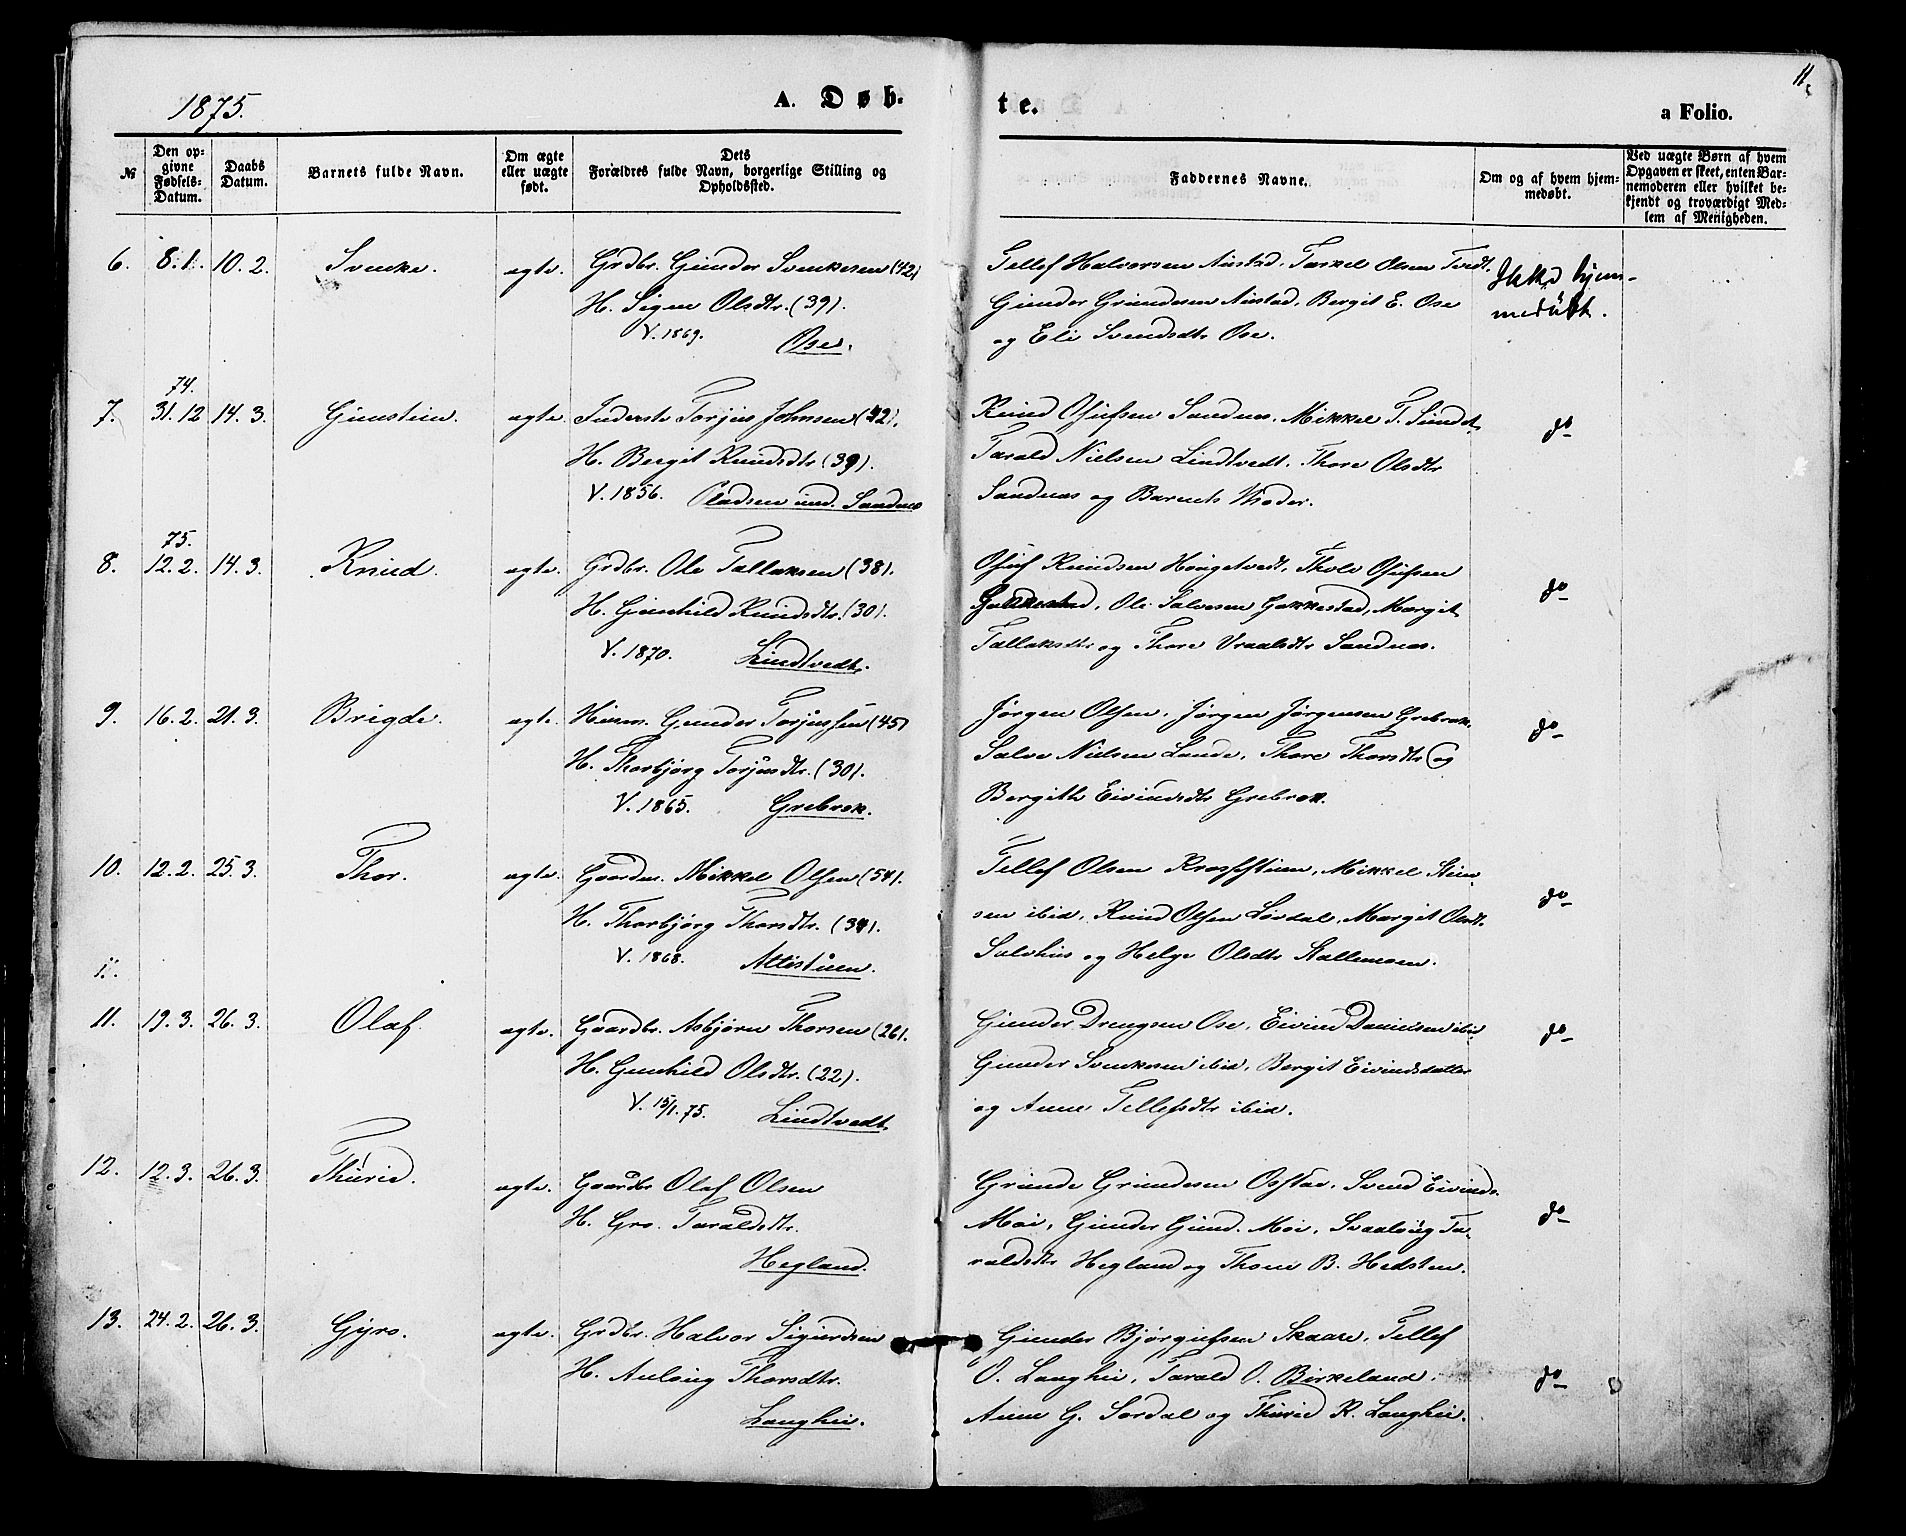 1875.
A. Døb-
te.
a Folio.
11
№
Den op-
givne
Fødsels-
Datum.
Daabs
Datum.
Barnets fulde Navn.
Om ægte
eller uægte
født.
Dets
Forældres fulde Navn, borgerlige Stilling og
Opholdssted.
Faddernes Navne.
Om og af hvem hjem-
medøbt.
Ved uægte Børn af hvem
Opgaven er skeet, enten Bar-
nemoderen eller hvilket be-
kjendt og troværdigt Med-
lem af Menigheden.
6. 8.1. 10.2. Svenke. ægte. Grdbr. Gunder Svenkesen (42)
H. Signe Olsdtr. (39).
V. 1869. Ose.
Tellef Halvorsen Austad, Tarkel Olsen Tvedt,
Gunder Gundersen Austad, Bergit E. Ose
og Eli Svendsdtr Ose.
Ikke hjem-
medøbt.
74.
7. 31.12 14.3. Gunstein. ægte. Inderste Torjus Johnsen (42).
H. Bergit Knudsdtr (39).
V. 1856. Pladsen und. Sandnes
Knud Osufsen Sandnes, Mikkel T. Sundet,
Tarald Nielsen Lindtvedt, Thore Olsdtr
Sandnes og Barnets Moder.
do
75.
8. 12.2. 14.3. Knud. ægte. Grdbr. Ole Tallaksen (38).
H. Gunhild Knudsdtr. (30).
V. 1870. Lindtvedt.
Osuf Knudsen Haugetvedt, Tholv Osufsen
Gakkestad, Ole Salvesen Gakkestad, Margit
Tallaksdtr og Thore Vraalsdtr Sandnes.
do
9. 16.2. 21.3. Brigde. ægte. Huusm. Gunder Torjussen (45)
H. Thorbjørg Torjusdtr. (30).
V. 1865. Grebrok.
Jørgen Olsen, Jørgen Jørgensen Grebrok,
Salve Nielsen Lande, Thore Thorsdtr og
Bergithe Eivindsdtr Grebrok.
do
10. 12.2. 25.3. Thor. ægte. Gaardm. Mikkel Olsen (54).
H. Thorbjørg Thorsdtr. (39).
V. 1868. Attestuen.
Tellef Olsen Krosstuen, Mikkel Stein-
sen ibid, Knud Olsen Løvdal, Margit Olsdt.
Solehus og Helge Olsdtr Stallemoen.
do
11.
11. 19.3. 26.3. Olaf. ægte. Gaardbr. Asbjørn Thorsen (26).
H. Gunhild Olsdtr. (22).
V. 15/1. 75. Lindtvedt
Gunder Drengsen Ose, Eivind Danielsen ibid,
Gunder Svenkesen ibid, Bergit Eivindsdatter
og Anne Tellefsdtr ibid.
do
12. 12.3. 26.3. Thurid. ægte. Gaardbr Olaf Olsen
H. Gro Taraldsdtr.
Hegland.
Grunde Grundesen Ogstar, Svend Eivinds.
Moi, Gunder Gund. Moi, Svaalaug Ta-
raldsdtr Hegland og Thone B. Hedsten.
do
13. 24.2. 26.3. Gyro. ægte. Grdbr. Halvor Sigurdsen
H. Aslaug Thorsdtr.
Langhei.
Gunder Bjørgufsen Skaare, Tellef
O. Langhei, Tarald O. Birkeland,
Anne G. Sordal og Thurid K. Langhei.
do